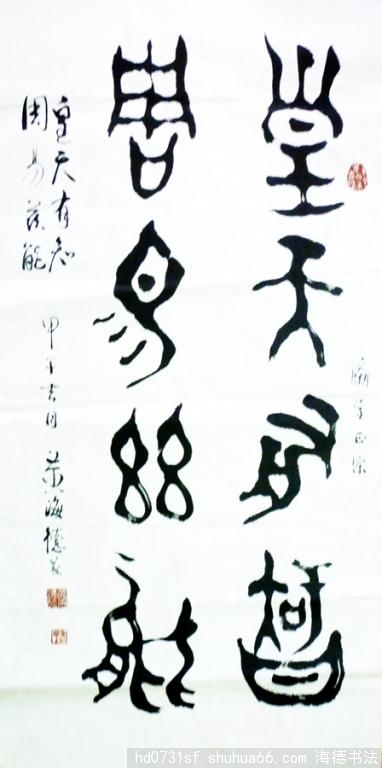 皇天有智
周易兹能
皇天有知
周易兹能
甲午吉日 海德
hd0731sf.shuhua66.com 海德书法